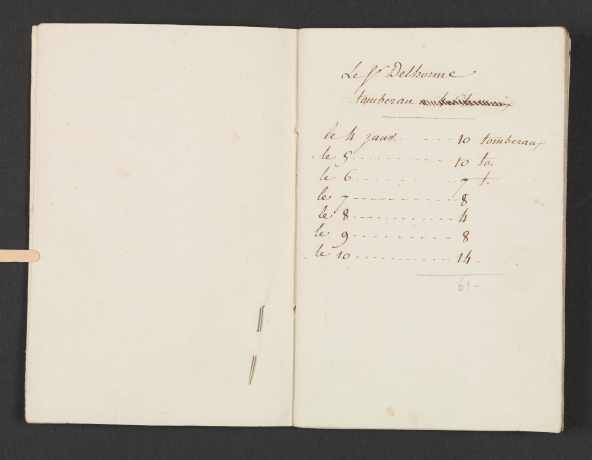 Le Sr Delhorme
tomberau
le 4 janv. 10 tomberau
le 5 10 to.
le 6 7 t.
le 7 8
le 8 4
le 9 8
le 10 14.
61-